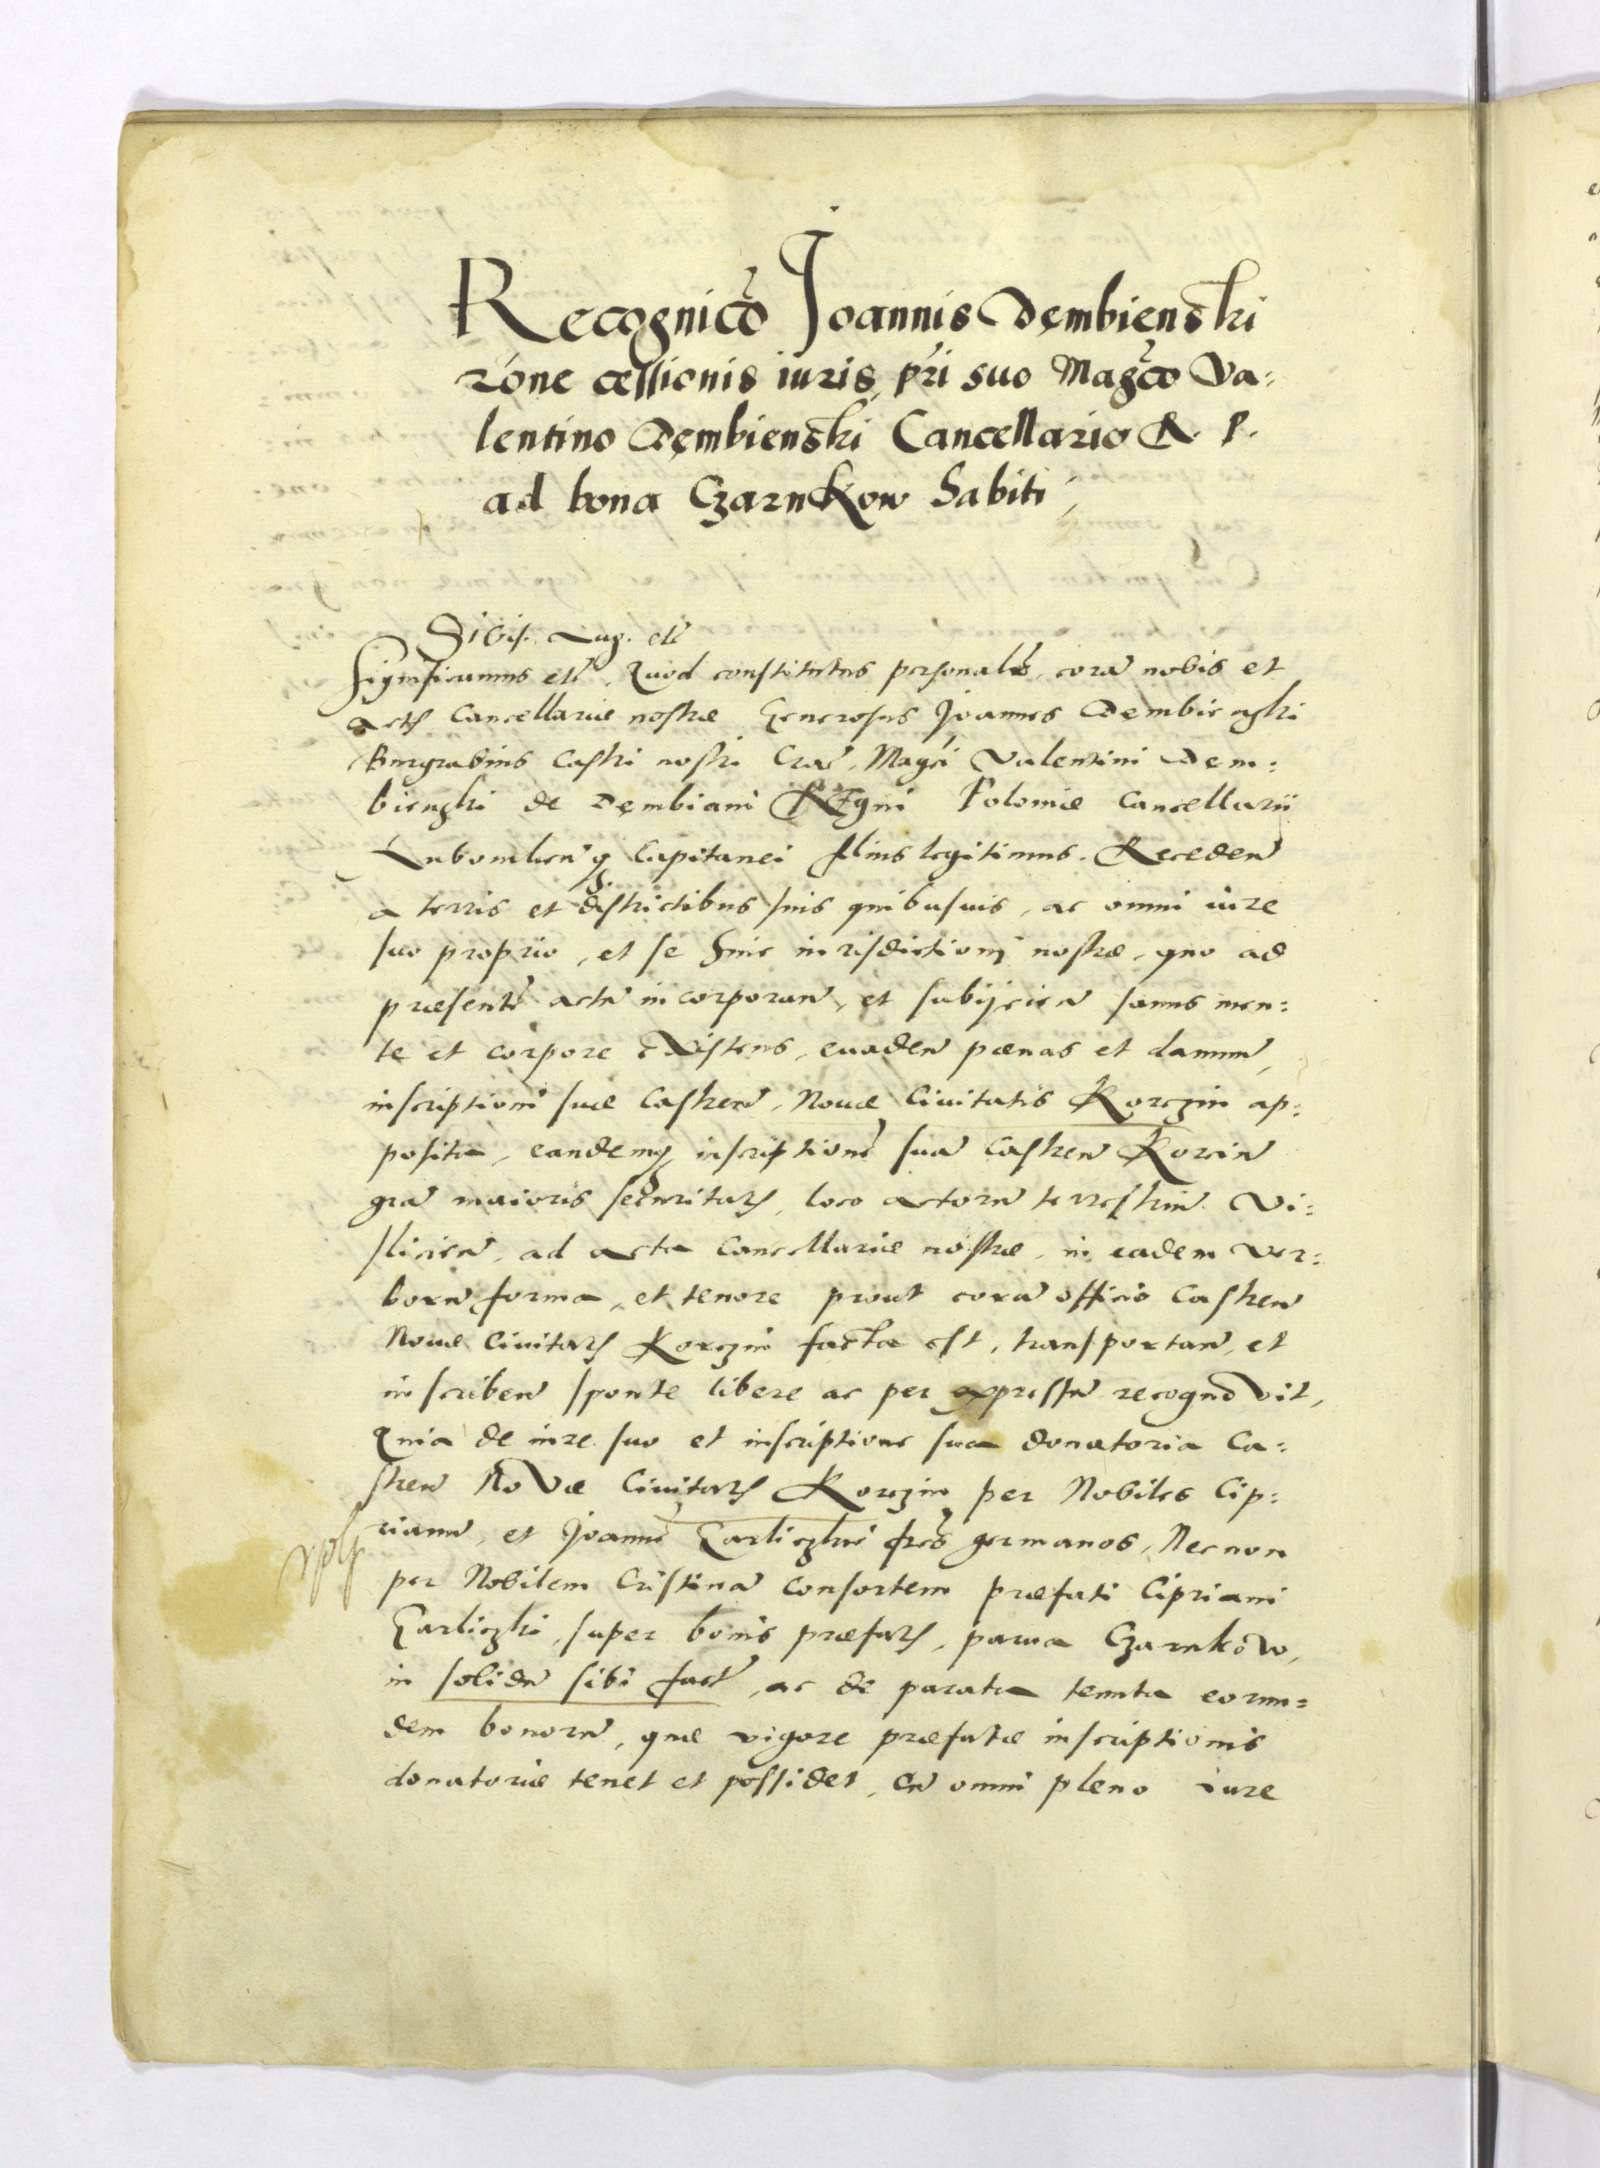 Recognico Joannis Dęmbienski
rōne cessionis iuris pri suo Magco Va:
lentino Dęmbienski Cancellario R. P.
ad bona Czarnkow habiti,
Sigis. Aug. etc
Significamus etc. Quod constitutus personalr, corā nobis et
actis Cancellariæ nostræ Generosus Joannes Dembienski
Burgrabius Castri nostri Crac. Magci Valentini Dem:
bienski de Dęmbiani REgni Poloniæ Cancellarii
Lubomlien q Capitanei filius legitimus. Receden
a terris et districtibus suis quibusuis, ac omni iure
suo proprio, et se huic iurisdictioni nostræ, quo ad
præsentē actū incorporan, et subijcien sanus men:
te et corpore eXistens, euaden pœnas et damna,
inscriptioni suæ Castren, Nouæ Ciuitatis Korczin ap:
posita, eandemq inscriptionē suā Castren Korcin
gra maioris securitatis, loco actorū terrestriū Vi:
slicien, ad acta Cancellariæ nostræ, in eadem ver:
borū forma, et tenore prout corā officio Castren
Nouæ Ciuitatis Korczin facta est, transportan, et
inscriben sponte libere ac per expressū recognoVit,
Quia de iure suo et inscriptione sua donatoria Ca:
stren NoVæ Ciuitatis Korczin per Nobiles Cip:
rianū, et Joannē Garliczkie frēs germanos, Necnon
per Nobilem Cristinā consortem præfati Cipriani
Garliczki, super bonis præfatis, parua Czarnkow,
in solidū sibi fact, ac de parata tenuta eorun=
dem bonorū, quæ vigore præfatæ inscriptionis
donatoriæ tenet et possidet, cū omni pleno iure